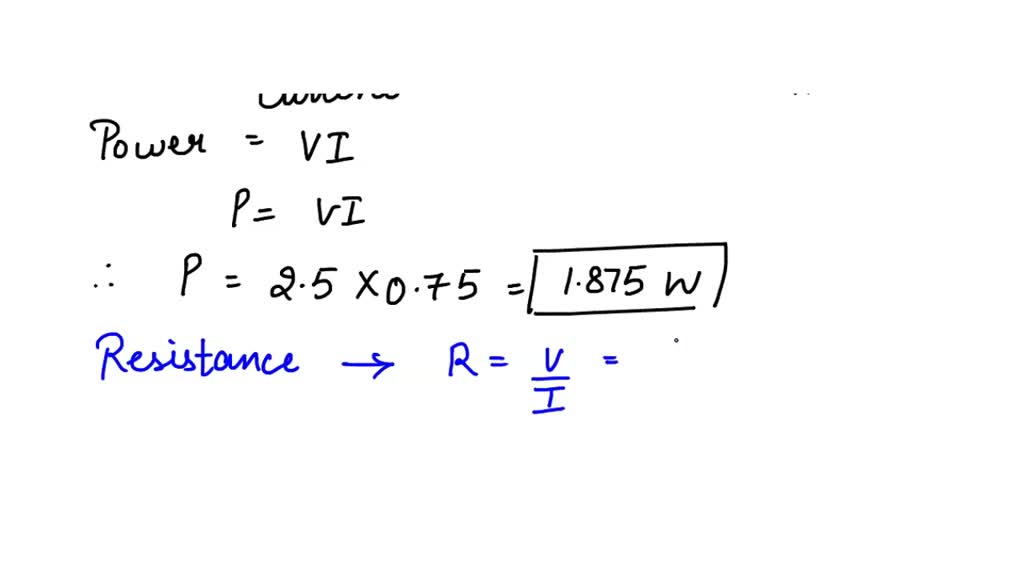 Power = VI
P = VI
∴ P = 2.5 × 0.75 = 1.875 W
Resistance → R = V/I =